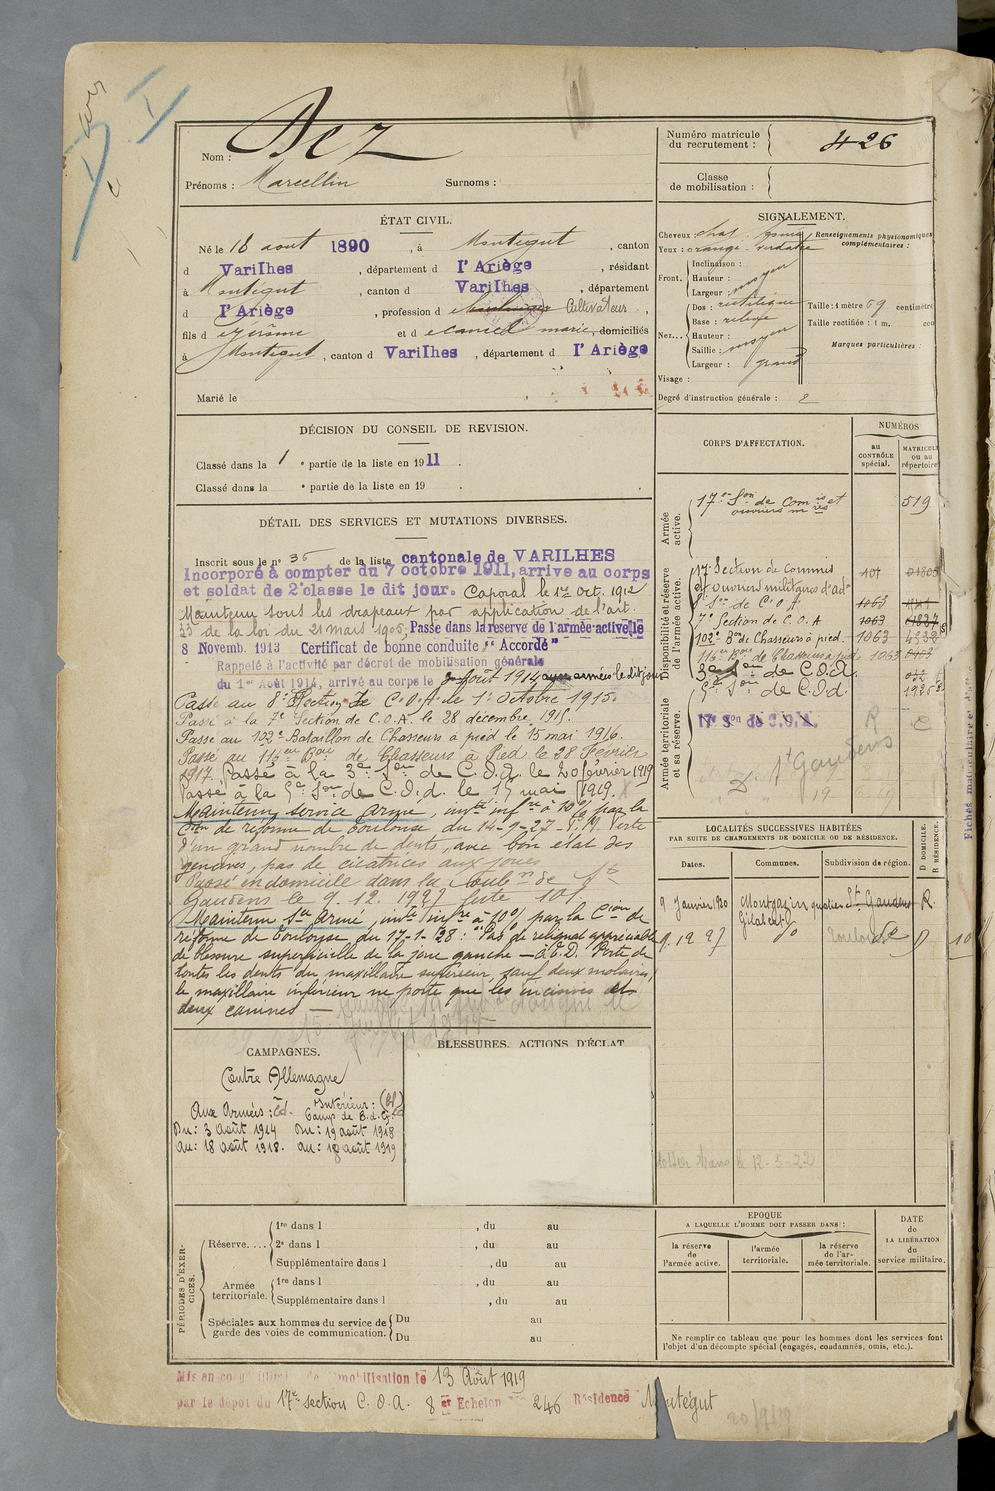 Nom : Dez
Prénoms : Marcellin Surnoms :
Numéro matricule du recrutement : 426
Classe de mobilisation :
ÉTAT CIVIL.
Né le 18 aout 1890, à Montégut, canton
d Varilhes, département d l'Ariège, résidant
à Montégut, canton d Varilhes, département
d l'Ariège, profession d Cultivateur,
fils d Jérôme et d marie, domiciliés
à Montégut, canton d Varilhes, département d l'Ariège
Marié le
SIGNALEMENT.
Cheveux : chat.
Yeux : orangé verdatre
Renseignements physionomiques complémentaires :
Front. Inclinaison :
Hauteur : moyen
Largeur :
Nez... Dos : rectiligne
Base : relevé
Hauteur :
Saillie : moyen
Largeur : grand
Taille : 1 mètre 69 centimètres
Taille rectifiée : 1 m. cen
Marques particulières :
Visage :
Degré d'instruction générale : 2
DÉCISION DU CONSEIL DE REVISION.
Classé dans la 1 e partie de la liste en 1911.
Classé dans la e partie de la liste en 19 .
DÉTAIL DES SERVICES ET MUTATIONS DIVERSES.
Inscrit sous le n° 36 de la liste cantonale de VARILHES
Incorporé à compter du 7 octobre 1911, arrive au corps
et soldat de 2e classe le dit jour. Caporal le 1er Oct. 1912
Maintenu sous les drapeaux par application de l'art.
33 de la loi du 21 mars 1905, Passé dans la réserve de l'armée active le
8 Novemb. 1913 Certificat de bonne conduite "Accordé"
Rappelé à l'activité par décret de mobilisation générale
du 1er Août 1914, arrivé au corps le 3 août 1914 aux armées le dit jour
Passé au 8e Section de C.O.A. le 1er Octobre 1915.
Passé à la 7e Section de C.O.A. le 28 décembre 1915.
Passé au 102e Bataillon de Chasseurs à pied le 15 mai 1916.
Passé au 116eme Bon de Chasseurs à Pied le 28 Février
1917. Passé à la 3e Son de C.O.A. le 20 février 1919
Passé à la 5e Son de C.O.A. le 15 mai 1919.
Maintenu service armé, invté infre à 10% par la
Cion de réforme de Toulouse, du 14-9-27 - P.M. Perte
d'un grand nombre de dents, avec bon état des
gencives, pas de cicatrices aux joues
Passé en domicile dans la Subon de St
Gaudens le 9.12.1927 liste 101
Maintenu Sce Armé, invté infre à 10% par la Cion de
réforme de Toulouse du 17-1-28 : "Pas de reliquat appréciable
de blessure superficielle de la joue gauche - Perte de
toutes les dents du maxillaire supérieur, sauf deux molaires,
le maxillaire inférieur ne porte que les incisives et
deux canines
CORPS D'AFFECTATION.
NUMÉROS
au CONTRÔLE spécial.
MATRICULE ou au répertoire
Armée active.
17e Son de Commis et ouvriers mres 519
Disponibilité et réserve de l'armée active.
17e Section de Commis
et Ouvriers militaires d'adon 107
8e Son de C.O.A. 1063
7e Section de C.O.A 1063
102e Bon de Chasseurs à pied 1063
116eme Bon de Chasseurs à pied 1063
3e Son de C.O.A.
5e Son de C.O.A.
Armée territoriale et sa réserve.
17e Son de C.O.A. R
St Gaudens
LOCALITÉS SUCCESSIVES HABITÉES
PAR SUITE DE CHANGEMENTS DE DOMICILE OU DE RÉSIDENCE.
Dates. Communes. Subdivision de région. D DOMICILE. R RÉSIDENCE.
9 Janvier 1920 Montgazin St Gaudens R.
9.12.27 do do D
CAMPAGNES.
Contre Allemagne
Aux Armées : Intérieur :
Du : 3 août 1914 Du : 19 août 1918
Au : 18 août 1918. Au : 18 août 1919
BLESSURES. ACTIONS D'ÉCLAT
le 12-5-22
PÉRIODES D'EXERCICES.
Réserve.... 1re dans l , du au
2e dans l , du au
Supplémentaire dans l , du au
Armée territoriale. 1re dans l , du au
Supplémentaire dans l , du au
Spéciales aux hommes du service de garde des voies de communication. Du au
Du au
EPOQUE
A LAQUELLE L'HOMME DOIT PASSER DANS :
la réserve de l'armée active.
l'armée territoriale.
la réserve de l'armée territoriale.
DATE de LA LIBÉRATION du service militaire.
Ne remplir ce tableau que pour les hommes dont les services font
l'objet d'un décompte spécial (engagés, condamnés, omis, etc.).
Mis en congé illimité de démobilisation le 13 Août 1919
par le dépôt du 17e section C.O.A. 8 er Echelon 246 Résidence Montégut